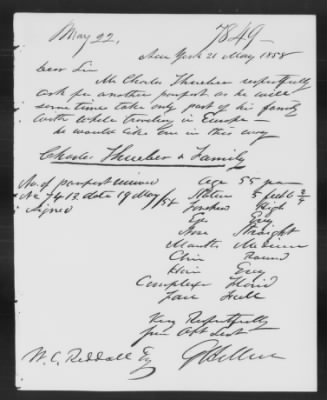 May 22.
7849
New York 21 May 1858
Dear Sir
Mr Charles Thurber respectfully
ask for another passport as he will
some times take only part of his family
with while traveling in Europe
he would like one in this way
Charles Thurber & Family
No. of passport
No 7413 date 19 May /58
Signed
age 55 years
Stature 5 feet 6 3/4
Forehead High
Eye Grey
Nose Straight
Mouth Medium
Chin Round
Hair Grey
Complexion Florid
Face Full
Very Respectfully
your Obt Sevt
W. C. Reddall Esq